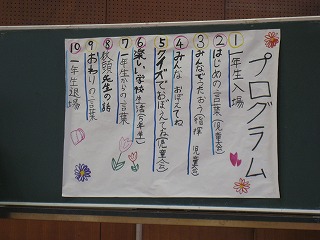 プログラム
1 一年生入場
2 はじめの言葉(児童会)
3 みんなでうたおう(指揮 児童会)
4 みんな おぼえてね
5 クイズでおぼえてね(児童会)
6 楽しい学校生活
7 一年生からの言葉
8 教頭先生の話
9 おわりの言葉
10 一年生退場